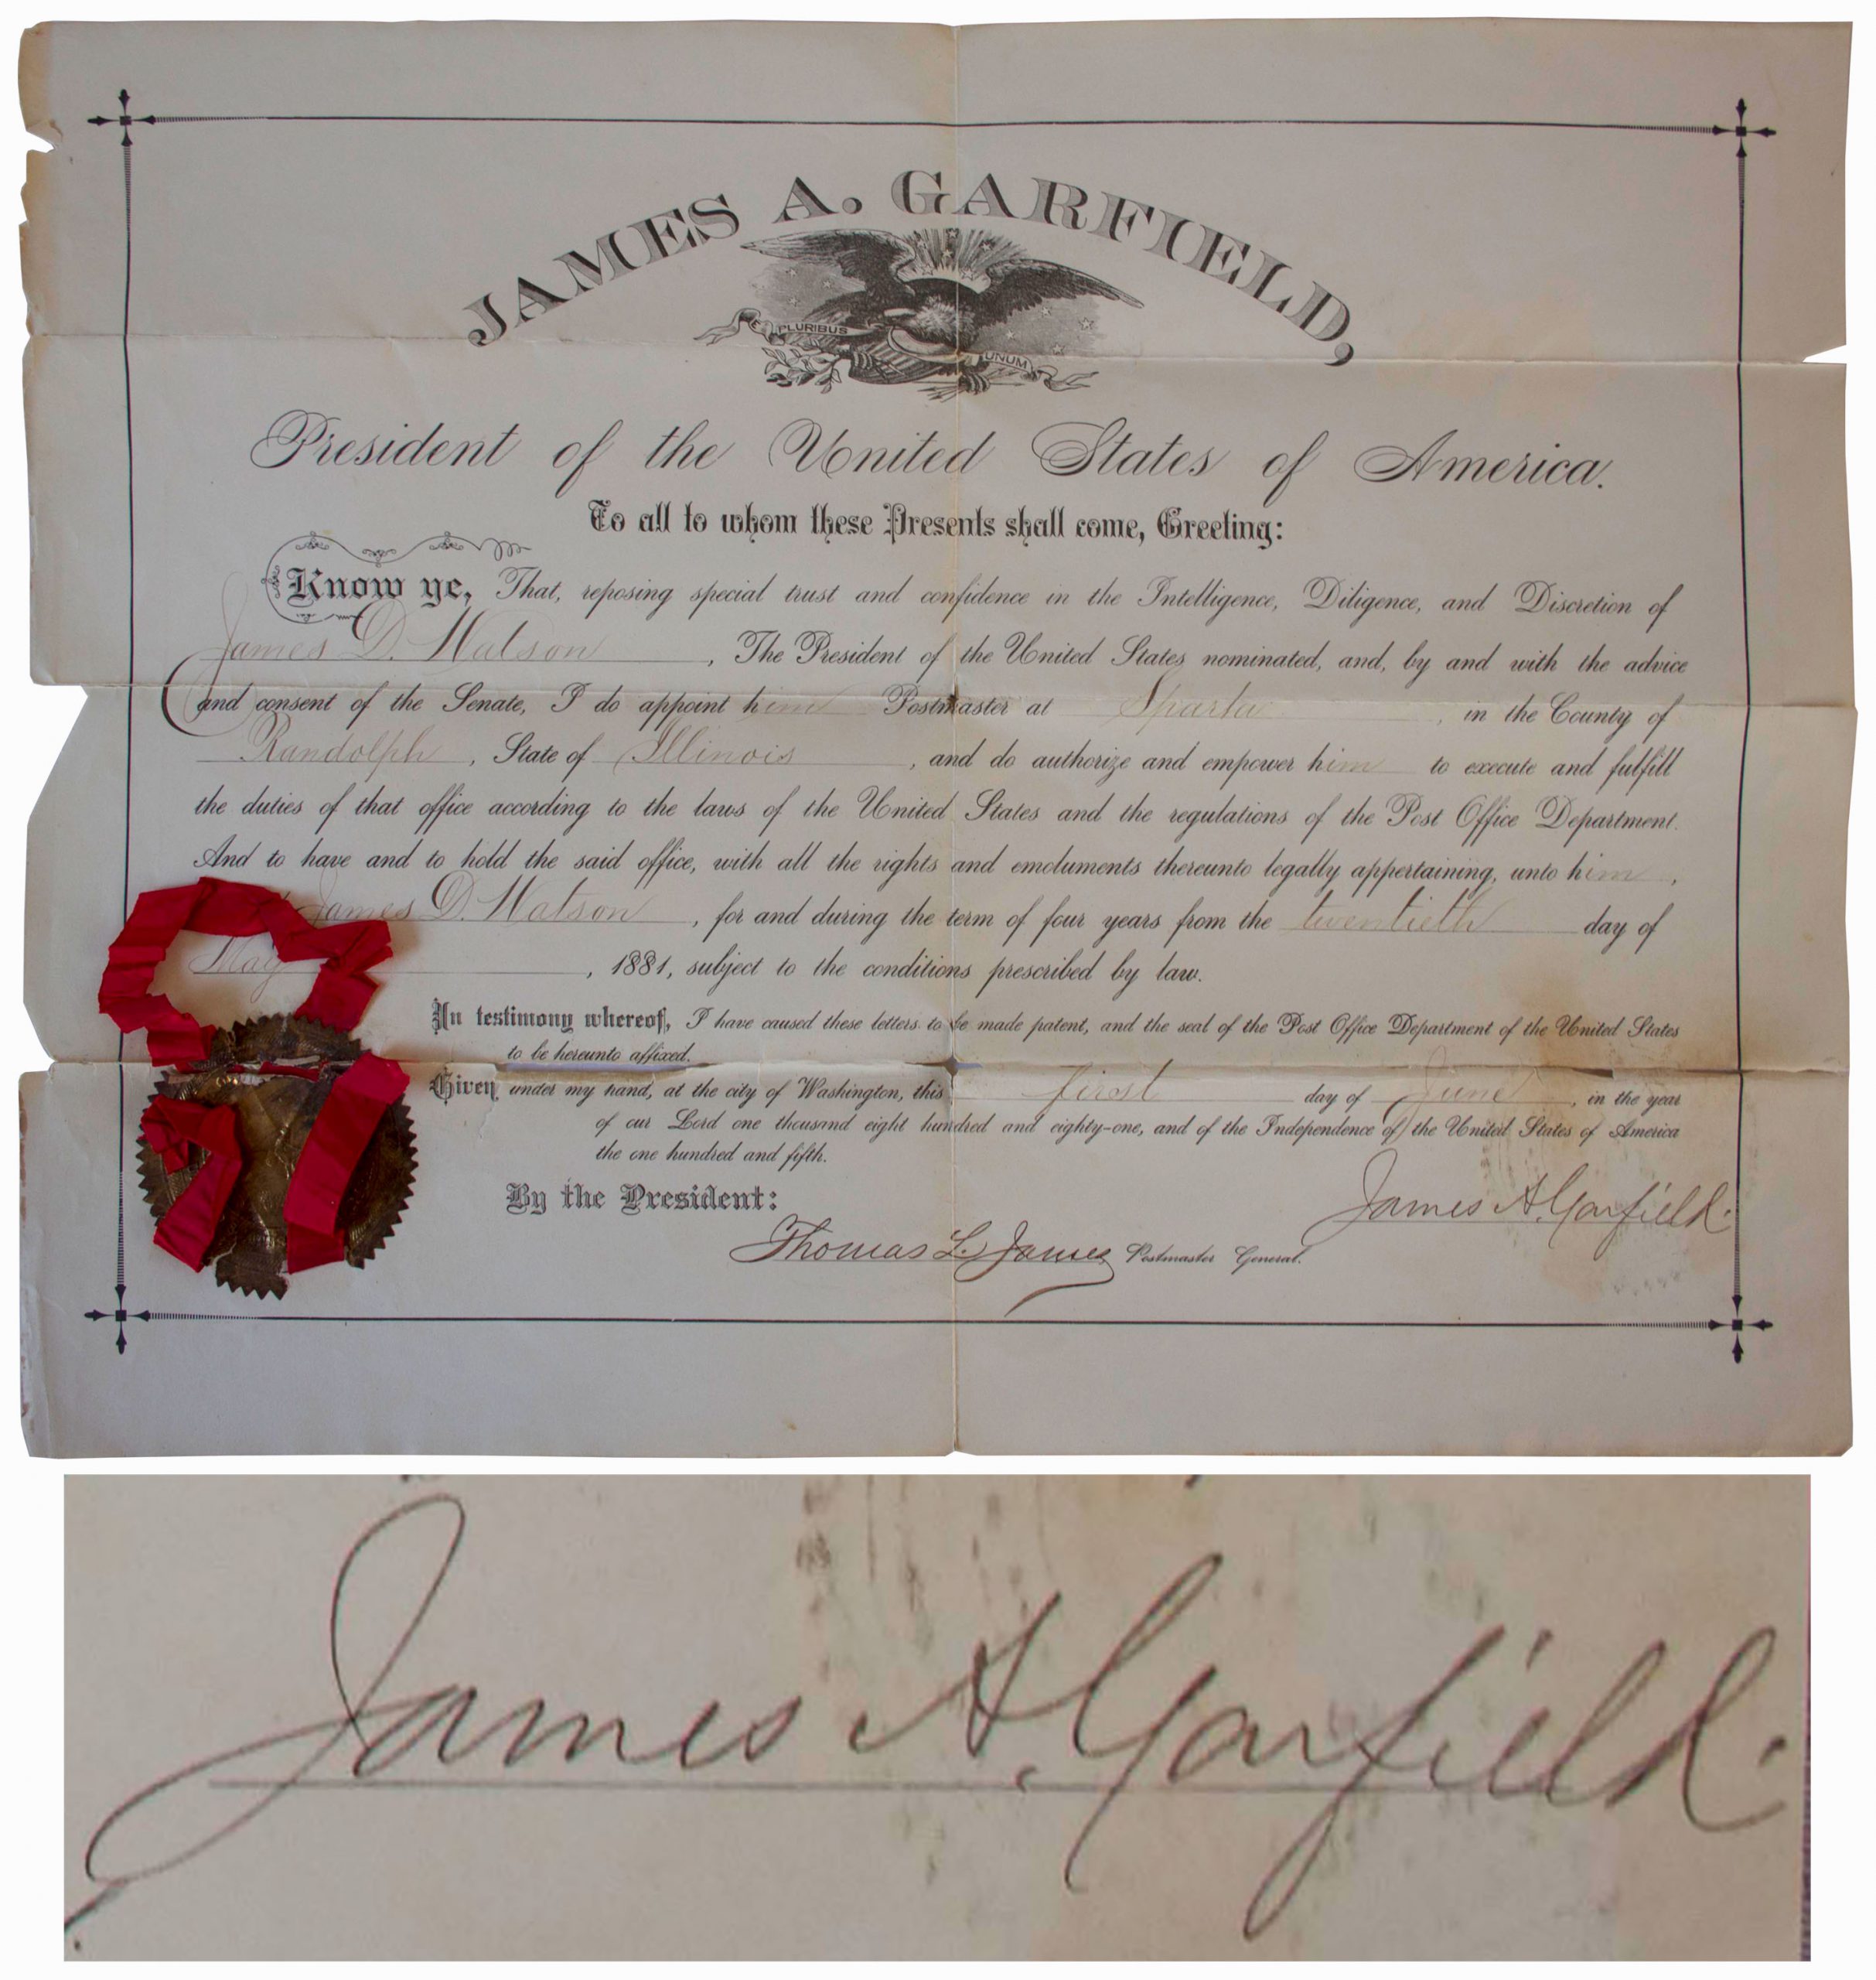 JAMES A. GARFIELD,
E PLURIBUS UNUM
President of the United States of America.
To all to whom these Presents shall come, Greeting:
Know ye, That, reposing special trust and confidence in the Intelligence, Diligence, and Discretion of
James D. Watson, The President of the United States nominated, and, by and with the advice
and consent of the Senate, I do appoint him Postmaster at Sparta, in the County of
Randolph, State of Illinois, and do authorize and empower him to execute and fulfill
the duties of that office according to the laws of the United States and the regulations of the Post Office Department.
And to have and to hold the said office, with all the rights and emoluments thereunto legally appertaining, unto him,
James D. Watson, for and during the term of four years from the twentieth day of
May, 1881, subject to the conditions prescribed by law.
In testimony whereof, I have caused these letters to be made patent, and the seal of the Post Office Department of the United States
to be hereunto affixed.
Given under my hand, at the city of Washington, this first day of June, in the year
of our Lord one thousand eight hundred and eighty-one, and of the Independence of the United States of America
the one hundred and fifth.
By the President:
James A. Garfield.
Thomas L. James Postmaster General.
James A. Garfield.